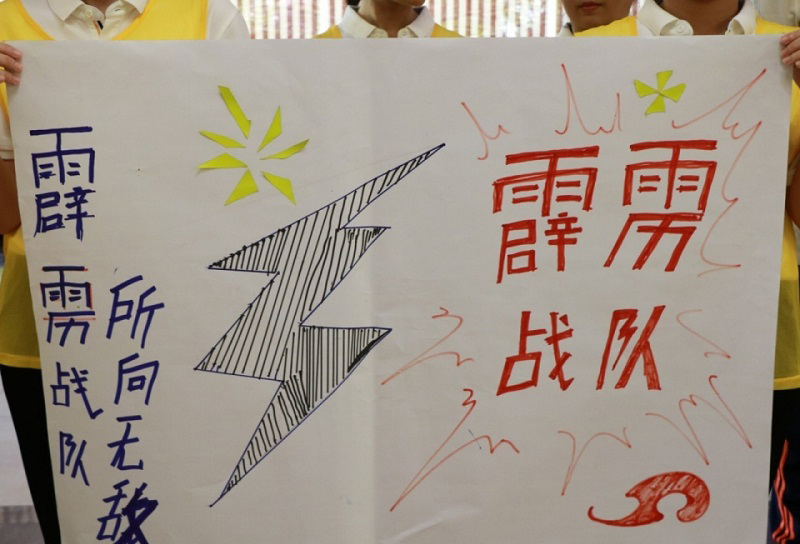 霹雳战队
所向无敌
霹雳
战队